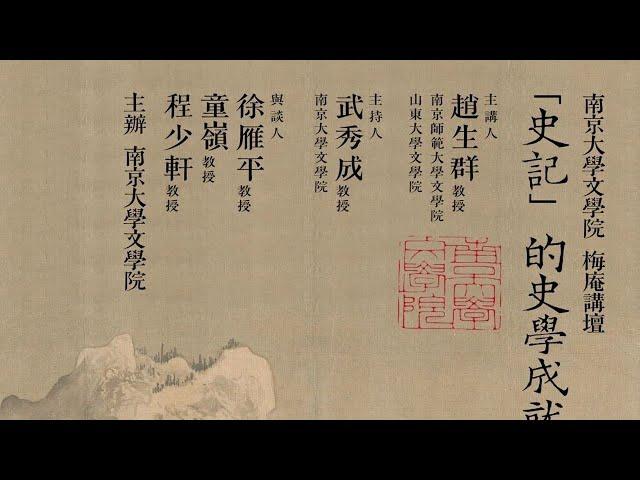 南京大學文學院 梅庵講壇
「史記」的史學成就
主講人
趙生群教授
南京師範大學文學院
山東大學文學院
主持人
武秀成教授
南京大學文學院
與談人
徐雁平教授
童嶺教授
程少軒教授
主辦 南京大學文學院